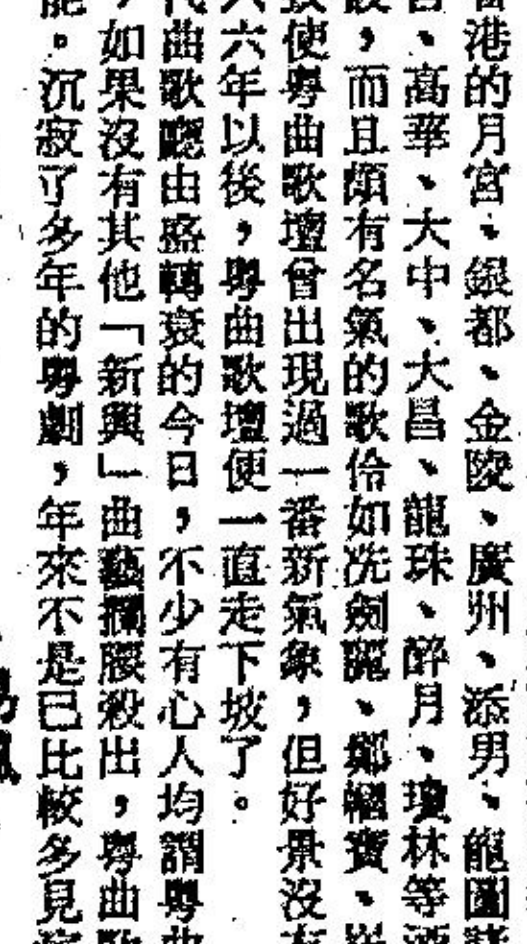 港的月宮、銀都、金陵、廣州、添男、龍圖
、高華、大中、大昌、龍珠、醉月、瓊林等酒
，而且頗有名氣的歌伶如冼劍麗、鄭幗寶、
使粵曲歌壇曾出現過一番新氣象，但好景沒有
六年以後，粵曲歌壇便一直走下坡了。
代曲歌廳由盛轉衰的今日，不少有心人均謂粵曲
，如果沒有其他「新興」曲藝攔腰殺出，粵曲歌
能。沉寂了多年的粵劇，年來不是已比較多見